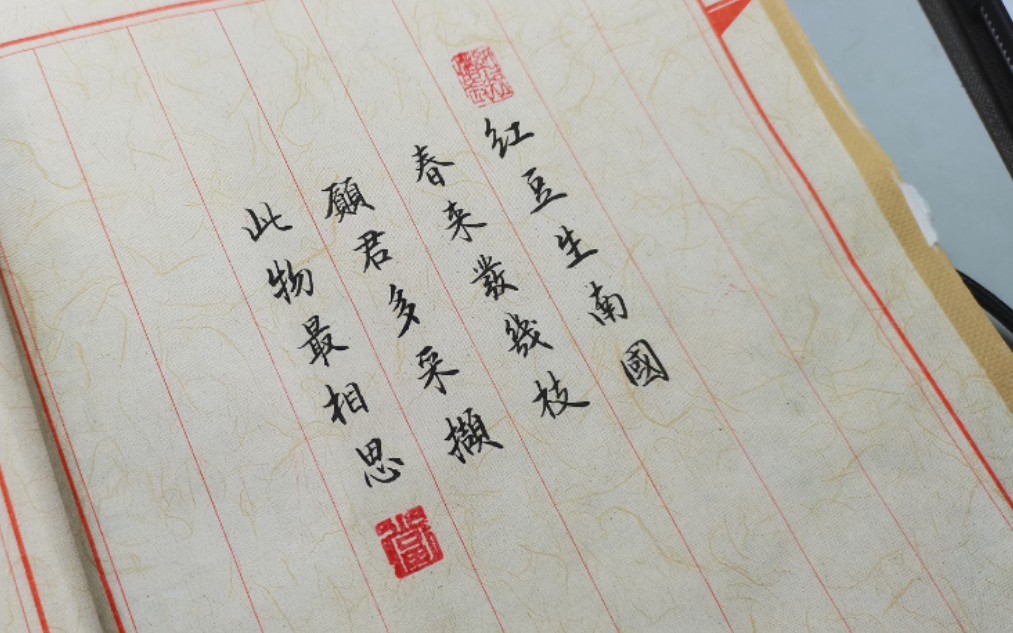 红豆生南國
春来發幾枝
願君多采擷
此物最相思